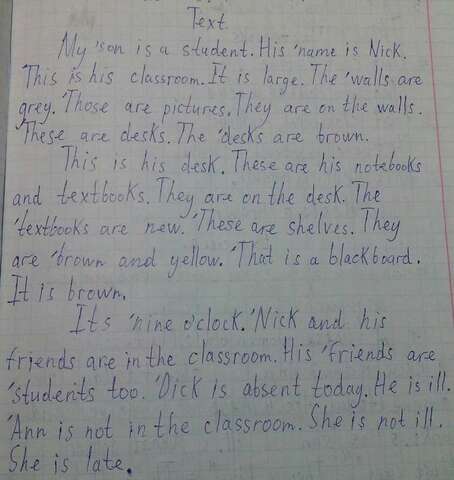 Text.
My 'son is a student. His 'name is Nick.
'This is his classroom. It is large. The 'walls are
grey. 'Those are pictures. They are on the walls.
'These are desks. The 'desks are brown.
This is his desk. These are his notebooks
and textbooks. They are on the desk. The
'textbooks are new. 'These are shelves. They
are 'brown and yellow. 'That is a blackboard.
It is brown.
Its 'nine o'clock. 'Nick and his
friends are in the classroom. His 'friends are
'students too. 'Dick is absent today. He is ill.
'Ann is not in the classroom. She is not ill.
She is late.